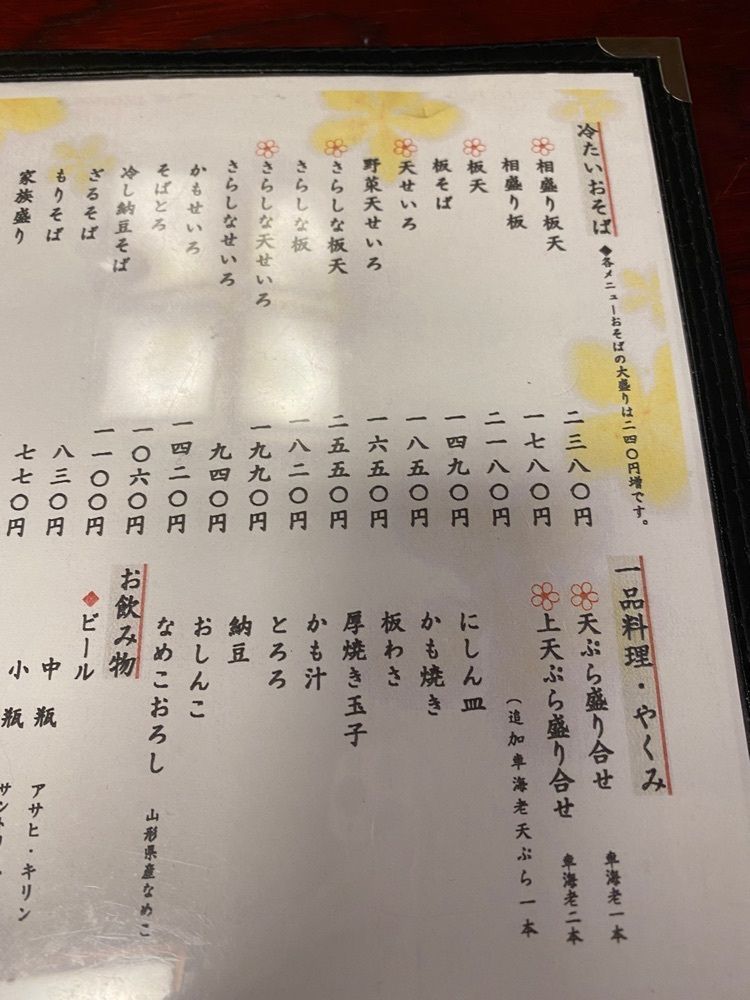 冷たいおそば ◆各メニューおそばの大盛りは二四〇円増です。
相盛り板天 二三八〇円
相盛り板 一七八〇円
板天 二一八〇円
板そば 一四九〇円
天せいろ 一八五〇円
野菜天せいろ 一六五〇円
さらしな板天 二五五〇円
さらしな板 一八二〇円
さらしな天せいろ 一九九〇円
さらしなせいろ 九四〇円
かもせいろ 一四二〇円
そばとろ 一〇六〇円
冷し納豆そば 一一〇〇円
ざるそば 八三〇円
もりそば 七七〇円
家族盛り
一品料理・やくみ
天ぷら盛り合せ 車海老一本
上天ぷら盛り合せ 車海老二本
(追加車海老天ぷら一本
にしん皿
かも焼き
板わさ
厚焼き玉子
かも汁
とろろ
納豆
おしんこ
なめこおろし 山形県産なめこ
お飲み物
◆ビール
中瓶 アサヒ・キリン
小瓶